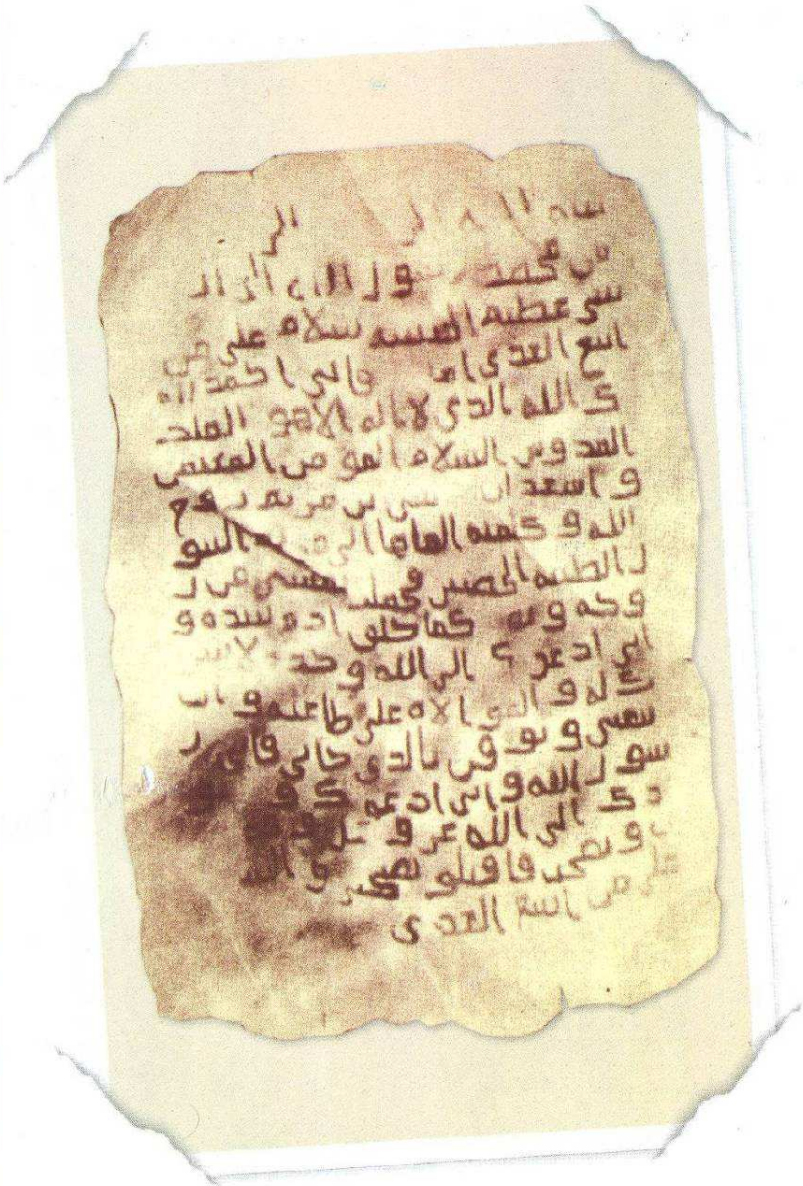 بسم ال
من محمد رسول الله الى النجا
شي عظيم الحبشة سلام على من
اتبع الهدى اما فاني احمد الي
ك الله الذي لا اله الا هو الملك
القدوس السلام المومن المهيمن
و اشهد ان عيسى بن مريم روح
الله و كلمته القاها الى مريم البتو
ل الطيبة الحصينة فحملت بعيسى من ر
وحه و نفخه كما خلق ادم بيده و
اني ادعوك الى الله وحده لا شر
يك له و الموالاة على طاعته و ان
تتبعني و توقن بالذي جاني فاني ر
سول الله و اني ادعوك و جنو
دك الى الله عز و جل و
و نصحت فاقبلوا نصحي و السلام
على من اتبع الهدى